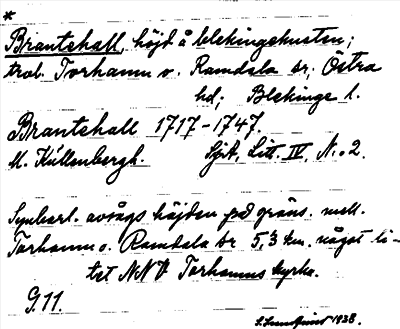 *
Brantehall, höjd å blekingekusten;
trol. Torhamn o. Ramdala sr, Östra
hd; Blekinge l.
Brantehall 1717-1747.
M. Kullenbergh. Sjöt, Litt. IV, N:o 2.
Synbarl. avsågs höjden på gräns. mell.
Torhamn o. Ramdala sr 5,3 km. något li-
tet NNV Torhamns kyrka.
G.11.
S. Lundquist 1938.